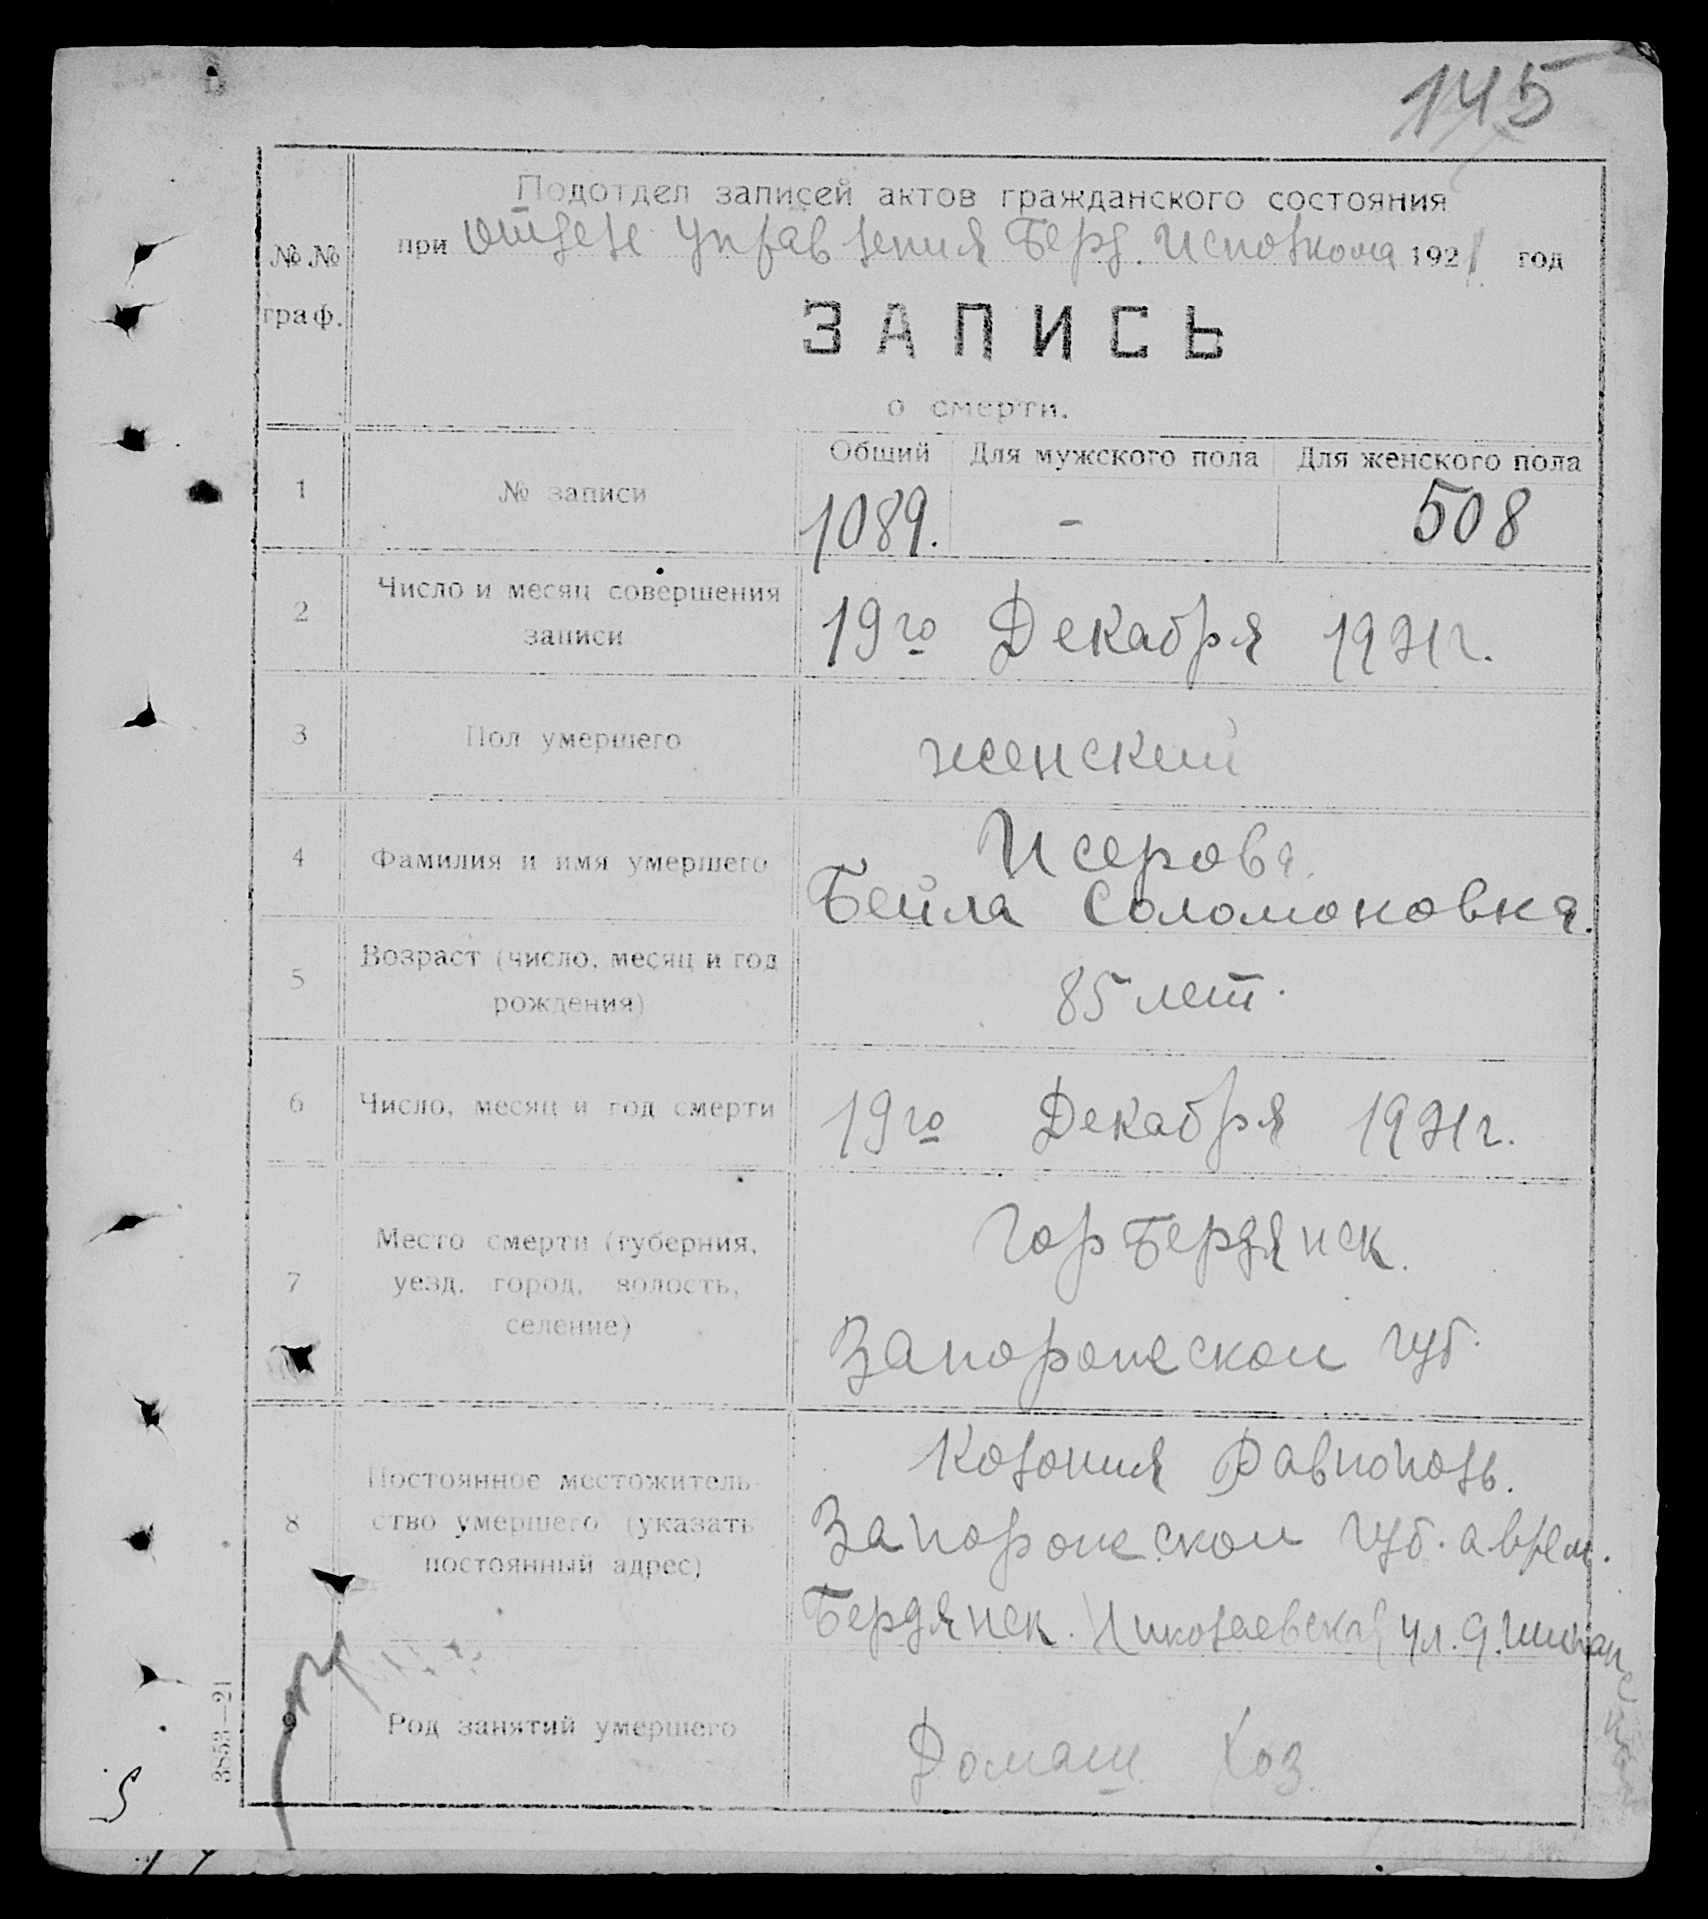 145
Подотдел записей актов гражданского состояния
при отделе Управления Берд. Исполкома 1921 год
№№ граф.
ЗАПИСЬ
о смерти.
Общий Для мужского пола Для женского пола
1 № записи 1089. - 508
2 Число и месяц совершения
записи
19го Декабря 1921г.
3 Пол умершего женский
4 Фамилия и имя умершего
Исерова
Бейла Соломоновна.
5 Возраст (число, месяц и год
рождения)
85 лет.
6 Число, месяц и год смерти 19го Декабря 1921г.
7 Место смерти (губерния,
уезд, город, волость,
селение)
Гор Бердянск.
Запорожской губ.
8 Постоянное местожитель-
ство умершего (указать
постоянный адрес)
Колония Равнополь.
Запорожской губ. а врем.
Бердянск. Николаевская ул. д.
9 Род занятий умершего Домаш. Хоз.
3853—21